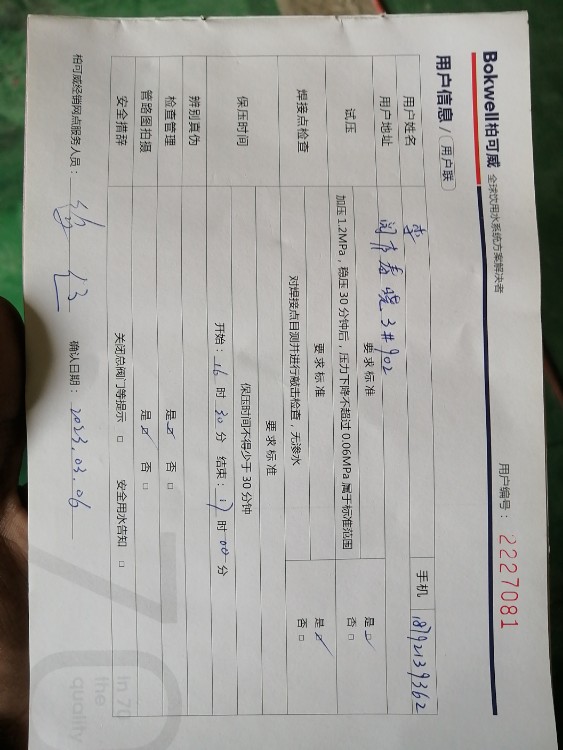 Bokwell柏可威 全球饮用水系统方案解决者
用户编号： 2227081
用户信息 / 用户联
用户姓名 李 手机 18792139362
用户地址 3#902
试压 要求标准
加压 1.2MPa，稳压 30 分钟后，压力下降不超过 0.06MPa 属于标准范围 是 ☑ 否 □
焊接点检查 要求标准
对焊接点目测并进行敲击检查，无渗水 是 ☑ 否 □
保压时间 要求标准
保压时间不得少于 30 分钟
开始：16 时 30 分 结束：17 时 00 分
辨别真伪
检查管理 是 ☑ 否 □
管路图拍摄 是 ☑ 否 □
安全措辞 关闭总阀门等提示 □ 安全用水告知 □
柏可威经销网点服务人员： 确认日期：2023.03.06
70
In 70
the
quality